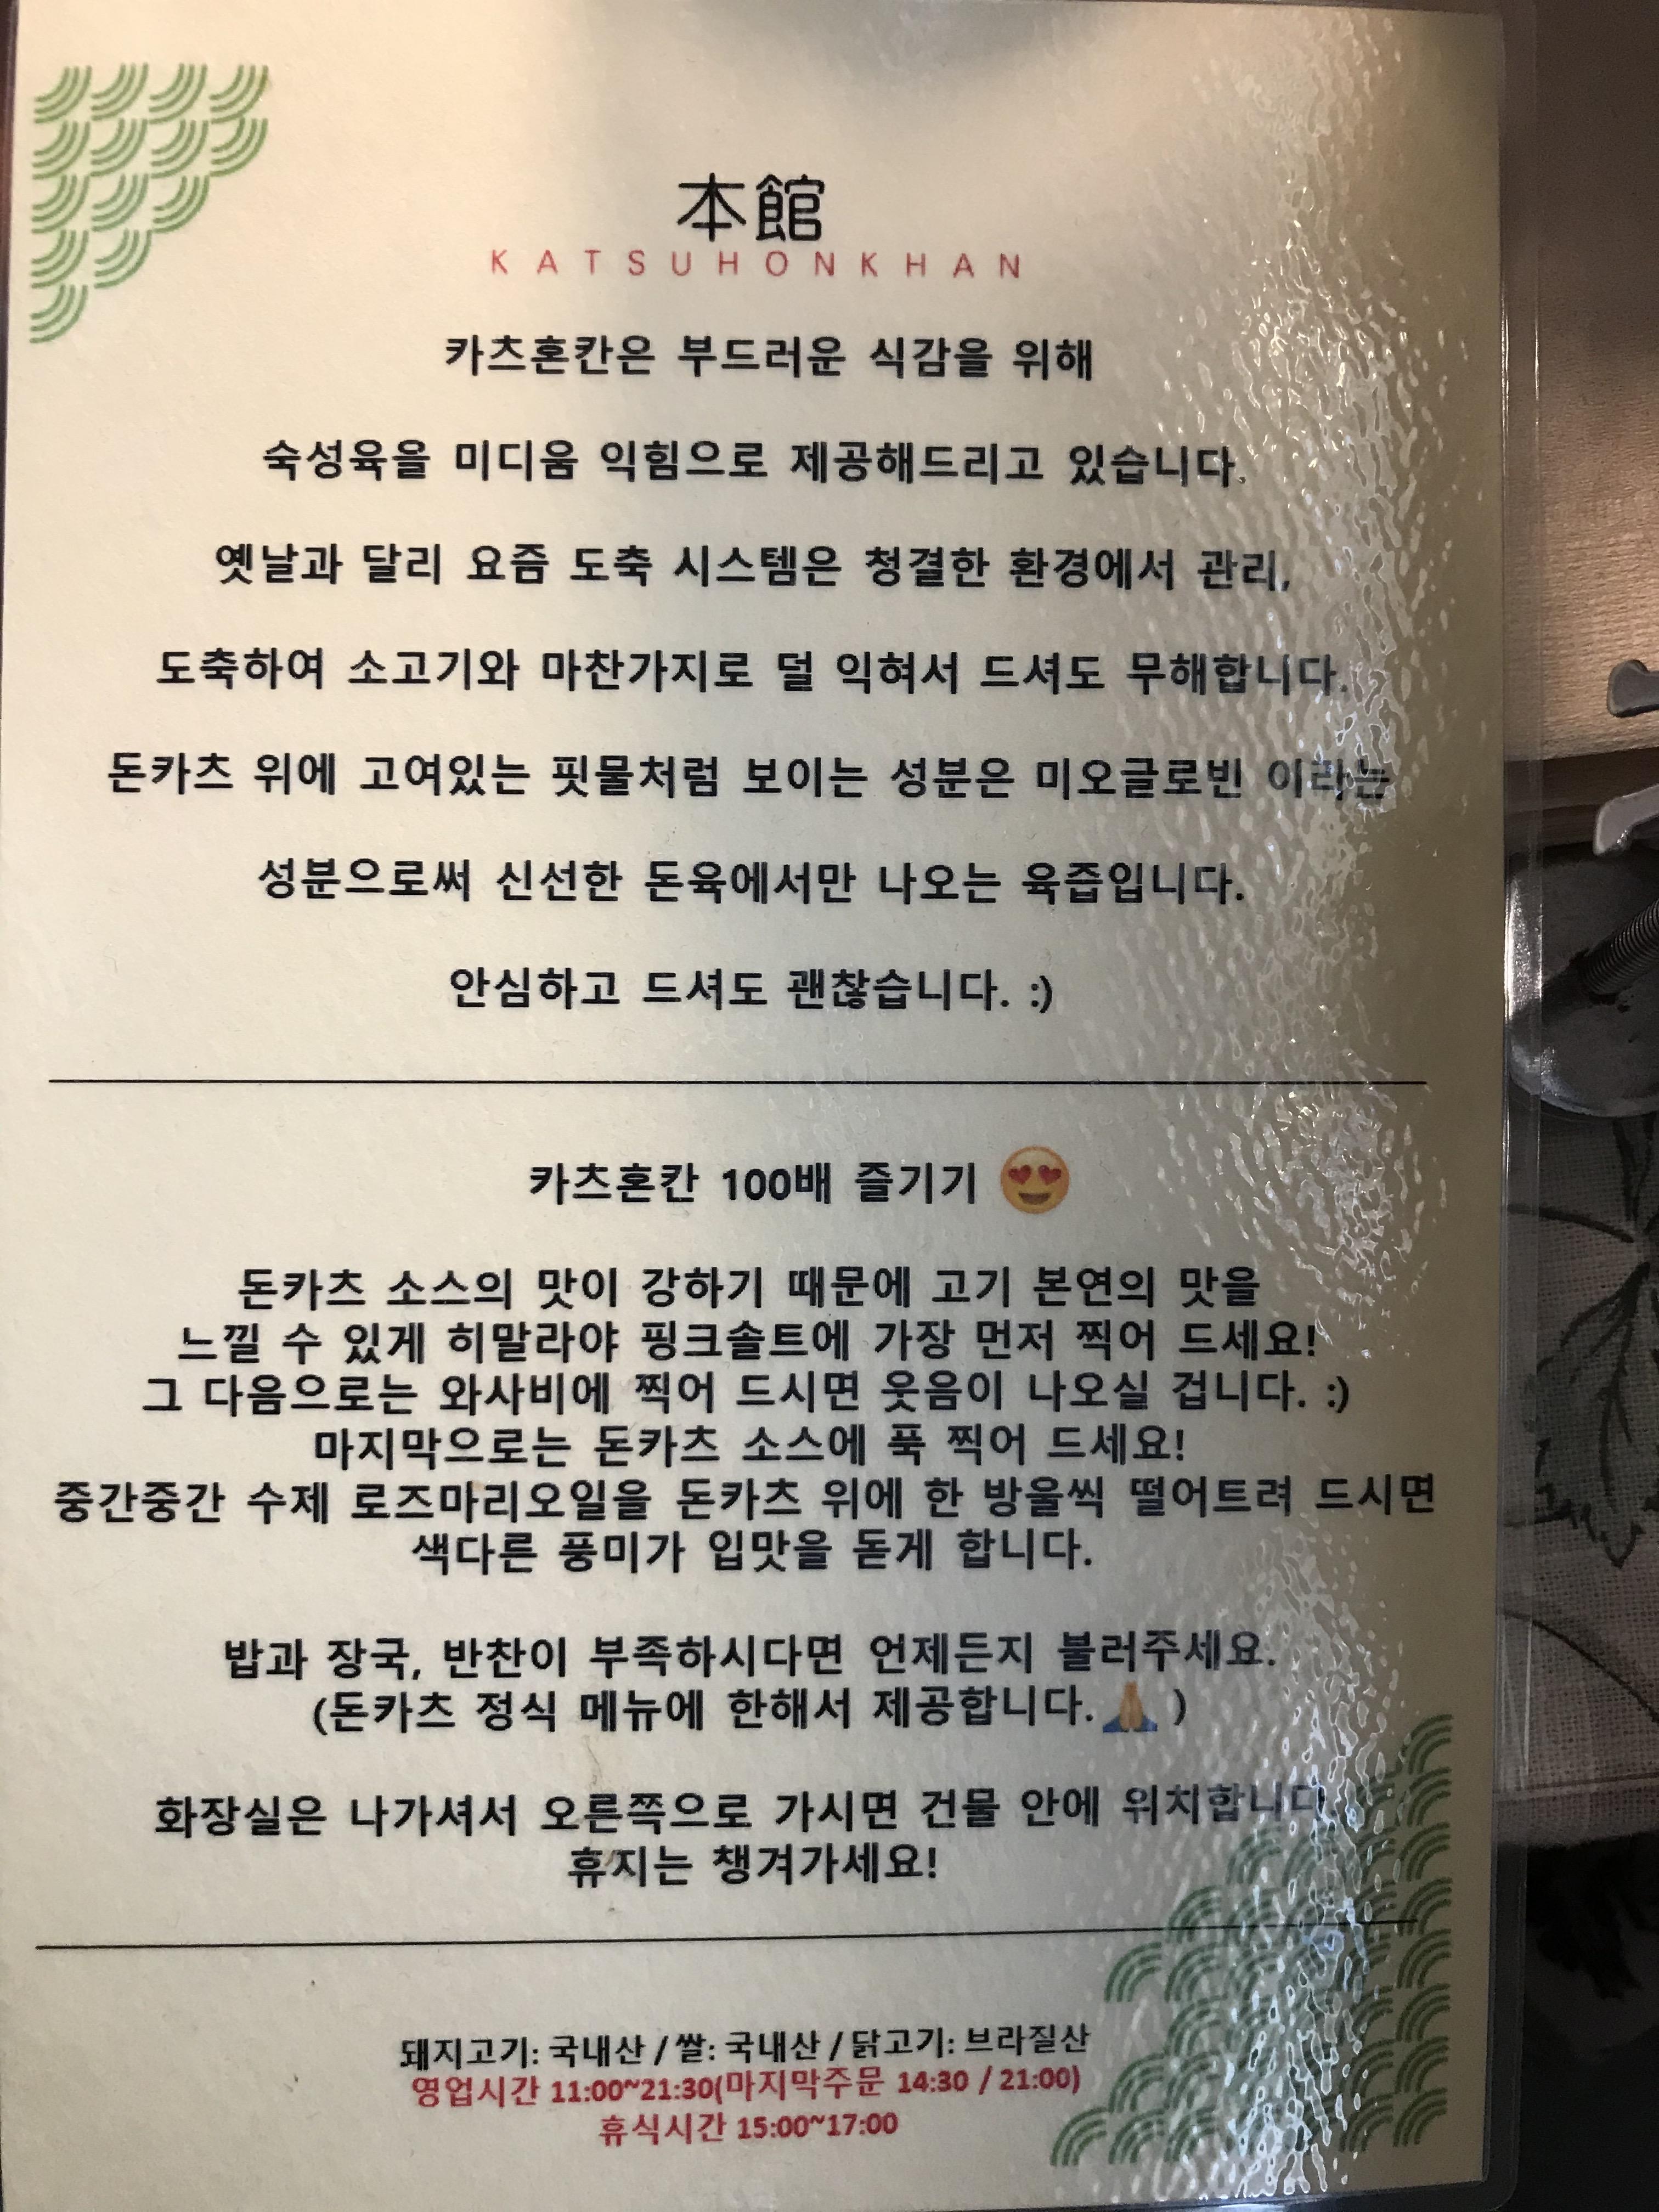 本館
KATSUHONKHAN
카츠혼칸은 부드러운 식감을 위해
숙성육을 미디움 익힘으로 제공해드리고 있습니다.
옛날과 달리 요즘 도축 시스템은 청결한 환경에서 관리,
도축하여 소고기와 마찬가지로 덜 익혀서 드셔도 무해합니다.
돈카츠 위에 고여있는 핏물처럼 보이는 성분은 미오글로빈 이라는
성분으로써 신선한 돈육에서만 나오는 육즙입니다.
안심하고 드셔도 괜찮습니다. :)
카츠혼칸 100배 즐기기 😍
돈카츠 소스의 맛이 강하기 때문에 고기 본연의 맛을
느낄 수 있게 히말라야 핑크솔트에 가장 먼저 찍어 드세요!
그 다음으로는 와사비에 찍어 드시면 웃음이 나오실 겁니다. :)
마지막으로는 돈카츠 소스에 푹 찍어 드세요!
중간중간 수제 로즈마리오일을 돈카츠 위에 한 방울씩 떨어트려 드시면
색다른 풍미가 입맛을 돋게 합니다.
밥과 장국, 반찬이 부족하시다면 언제든지 불러주세요.
(돈카츠 정식 메뉴에 한해서 제공합니다.🙏)
화장실은 나가셔서 오른쪽으로 가시면 건물 안에 위치합니다.
휴지는 챙겨가세요!
돼지고기: 국내산 / 쌀: 국내산 / 닭고기: 브라질산
영업시간 11:00~21:30(마지막주문 14:30 / 21:00)
휴식시간 15:00~17:00